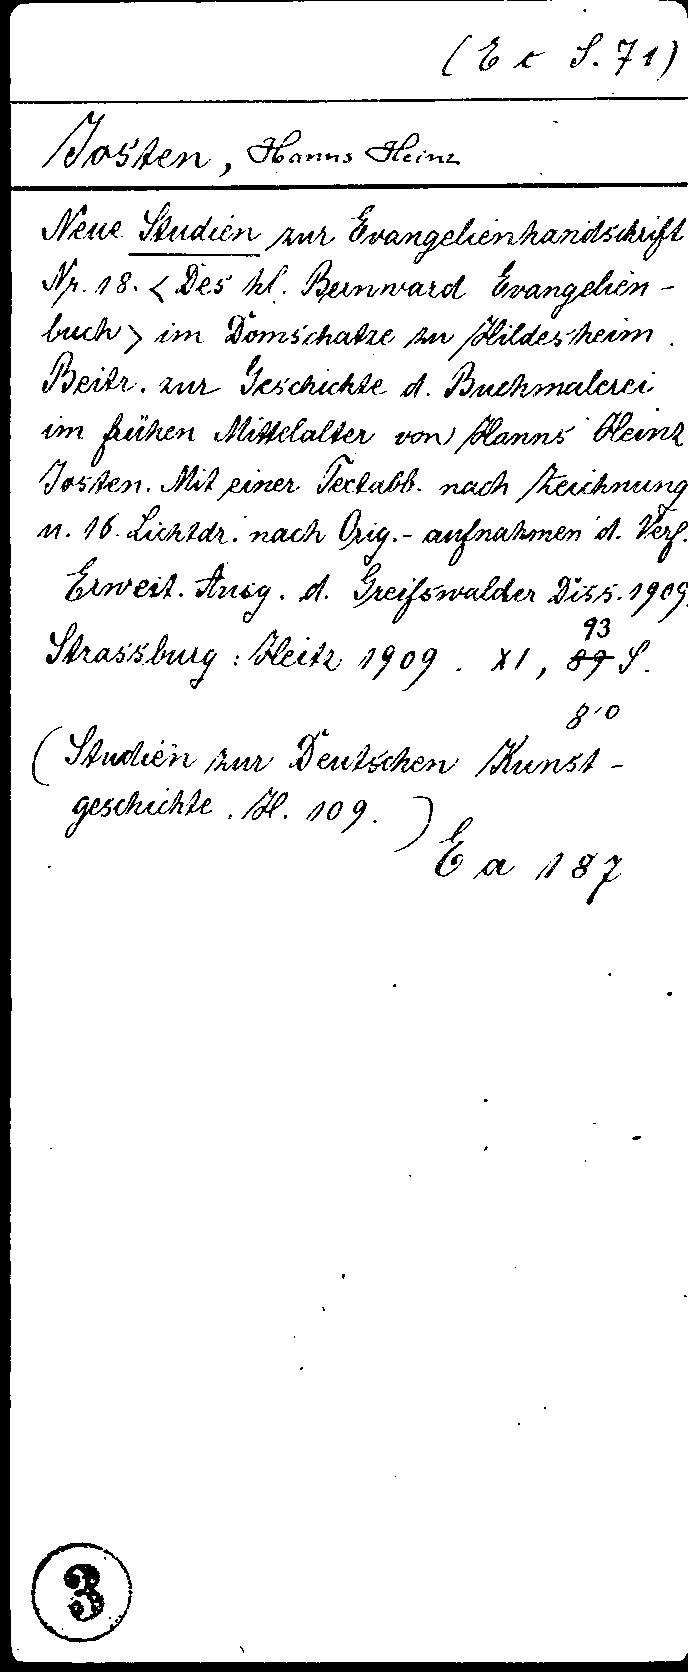 (E c S. 71)
Josten, Hanns Heinz
Neue Studien zur Evangelienhandschrift
Nr. 18. < Des hl. Bernward Evangelien-
buch > im Domschatze zu Hildesheim.
Beitr. zur Geschichte d. Buchmalerei
im frühen Mittelalter von Hanns Heinz
Josten. Mit einer Textabb. nach Zeichnung
u. 16. Lichtdr. nach Orig.-aufnahmen d. Verf.
Erweit. Ausg. d. Greifswalder Diss. 1909.
93
Strassburg: Heitz 1909. XI, 89 S.
8'0
(Studien zur Deutschen Kunst-
geschichte. H. 109.)
E a 187
3